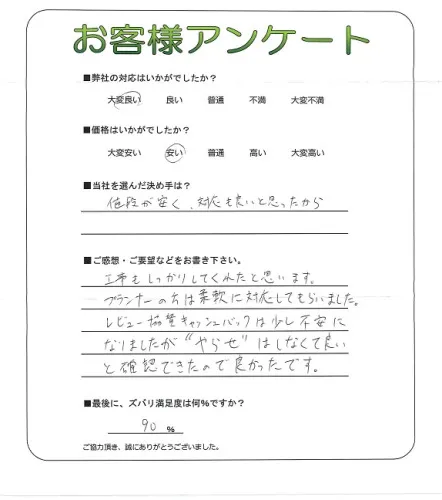 お客様アンケート
■弊社の対応はいかがでしたか?
大変良い 良い 普通 不満 大変不満
■価格はいかがでしたか?
大変安い 安い 普通 高い 大変高い
■当社を選んだ決め手は?
値段が安く、対応も良いと思ったから
■ご感想・ご要望などをお書き下さい。
工事もしっかりしてくれたと思います。
プランナーの方は柔軟に対応してもらいました。
レビュー協賛キャッシュバックは少し不安に
なりましたが"やらせ"はしなくて良い
と確認できたので良かったです。
■最後に、ズバリ満足度は何%ですか?
90 %
ご協力頂き、誠にありがとうございました。